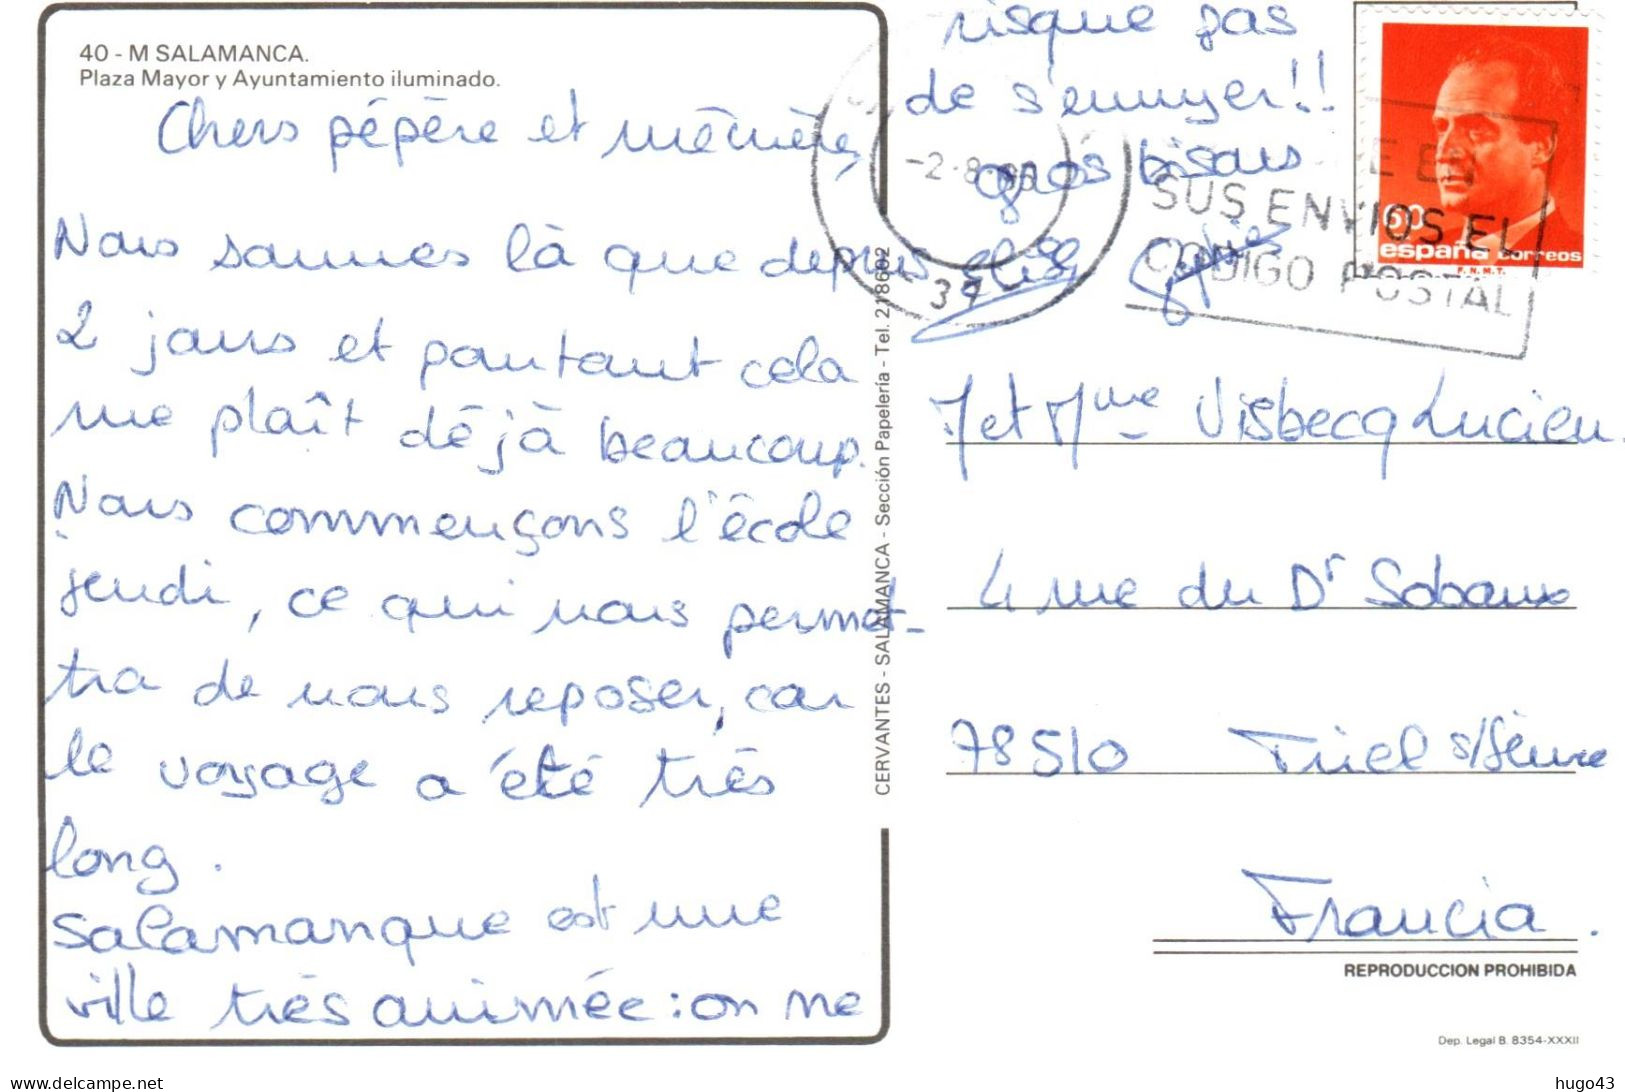 40 - M SALAMANCA.
Plaza Mayor y Ayuntamiento iluminado.
Chers pépère et mémère,
Nous sommes là que depuis
2 jours et pourtant cela
me plaît déjà beaucoup.
Nous commençons l'école
jeudi, ce qui nous permet-
tra de nous reposer, car
le voyage a été très
long.
Salamanque est une
ville très animée : on ne
risque pas
de s'ennuyer!!
gros bisous
CERVANTES - SALAMANCA - Sección Papelería - Tel. 218602
-2.8.
37
SUS ENVIOS EL
CODIGO POSTAL
60
españa correos
F.N.M.T.
M et Mme Visbecq Lucien
4 rue du Dr Sobaux
78510 Triel s/Seine
Francia.
REPRODUCCION PROHIBIDA
Dep. Legal B. 8354-XXXII
hugo43